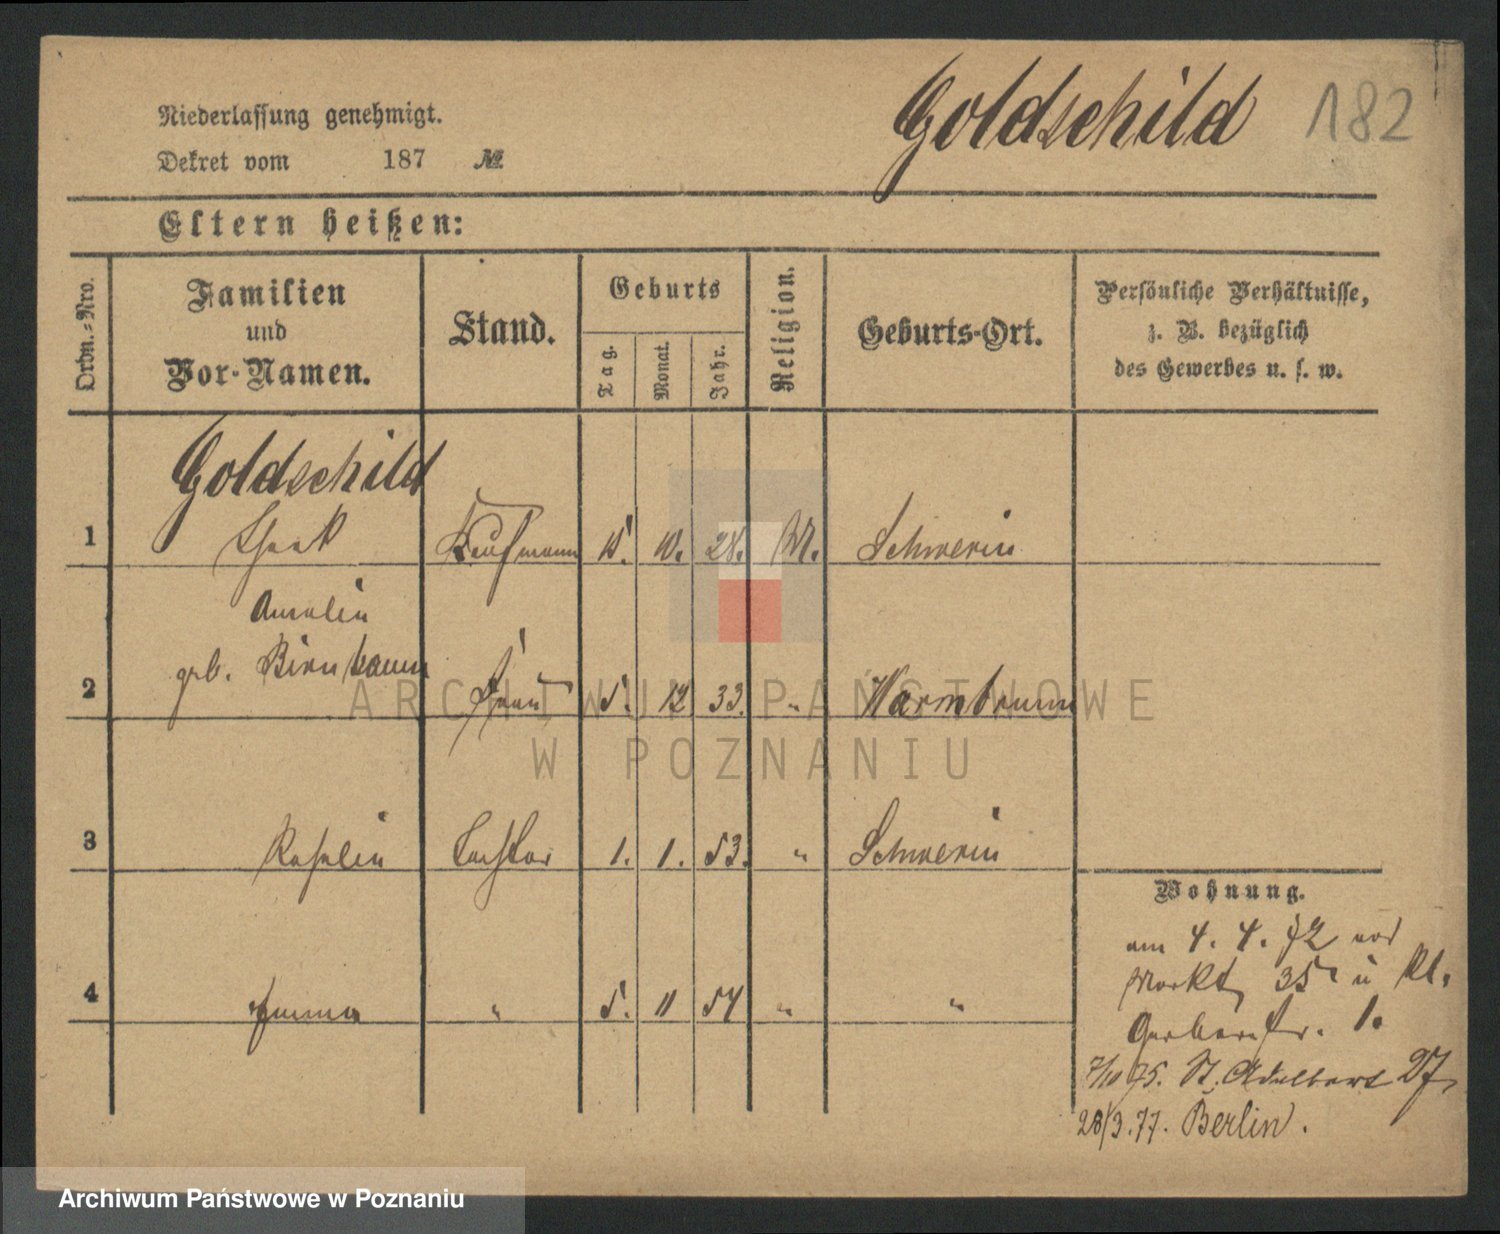 Goldschild 182
Niederlassung genehmigt.
Dekret vom 187 №
Eltern heißen:
Ordn.-Nro.
Familien und Vor-Namen.
Stand.
Geburts
Tag.
Monat.
Jahr.
Religion.
Geburts-Ort.
Persönliche Verhältnisse,
z. B. bezüglich
des Gewerbes u. s. w.
Goldschild
1 Kaufmann 15. 10. 28. M. Schwerin
Amalie
geb. Birnbaum
2 Frau 5. 12 33. " Warmbrunn
3 Rosalie Tochter 1. 1. 53. " Schwerin
4 Emma " 5. 11 54 " "
Wohnung.
am 4. 4. 72 von
Markt 35 u Kl.
Gerberstr. 1.
7/10 75. St. Adalbert 27,
28/3.77. Berlin.
ARCHIWUM PAŃSTWOWE
W POZNANIU
Archiwum Państwowe w Poznaniu